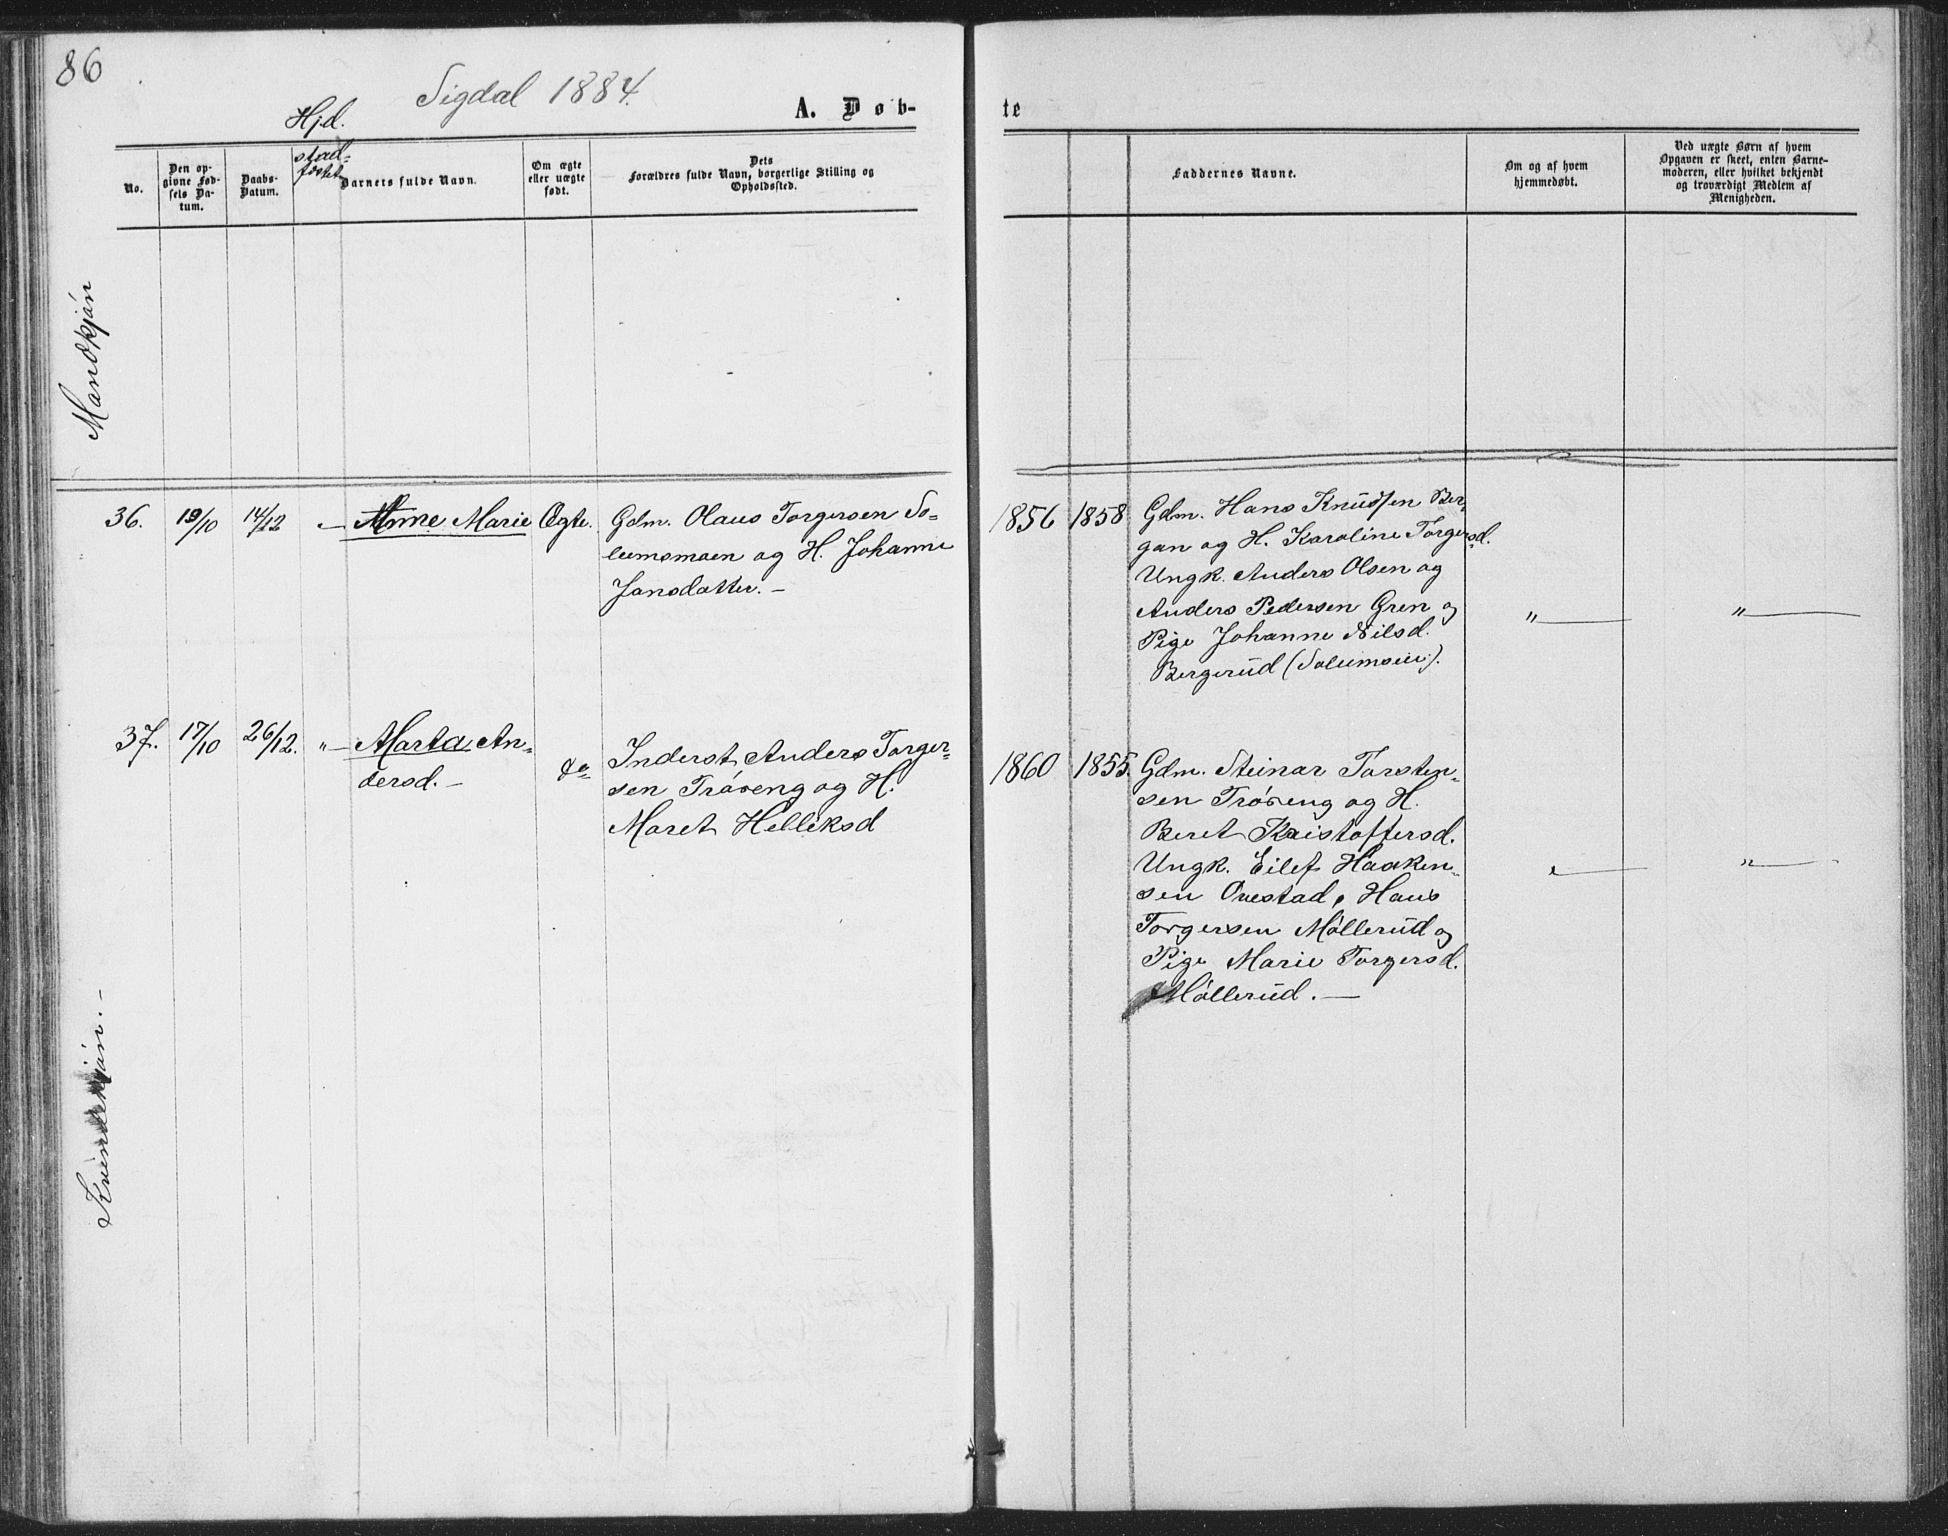 86
Sigdal 1884.
A. Døb-
te
No.
Den op-
givne Fød-
sels Da-
tum.
Daabs-
Datum.
Hjd.
stad-
fæstet
Barnets fulde Navn.
Om ægte
eller uægte
født.
Dets
Forældres fulde Navn, borgerlige Stilling og
Opholdssted.
Faddernes Navne.
Om og af hvem
hjemmedøbt.
Ved uægte Børn af hvem
Opgaven er skeet, enten Barne-
moderen, eller hvilket bekjendt
og troværdigt Medlem af
Menigheden.
Mandkjøn
36.
19/10
14/12
Anne Marie
Ægte.
Gdm. Olaus Torgersen So-
lumsmoen og H. Johanne
Jansdatter. –
1856
1858
Gdm. Hans Knudsen Ber-
gan og H. Karoline Torgersd.
Ungk. Anders Olsen og
Anders Pedersen Gren og
Pige Johanne Nilsd.
Bergerud (Solumsm:).
"
"
Kvindekjøn. –
37.
17/10
26/12.
"
Marta An-
dersd. –
do
Inderst Anders Torger-
sen Trøseng og H.
Maret Helliksd
1860
1855.
Gdm. Steinar Torsten-
sen Trøseng og H.
Beret Kristoffersd.
Ungk. Eilef Haaken-
sen Ovestad, Hans
Torgersen Møllerud og
Pige Marie Torgersd.
Møllerud. –
"
"